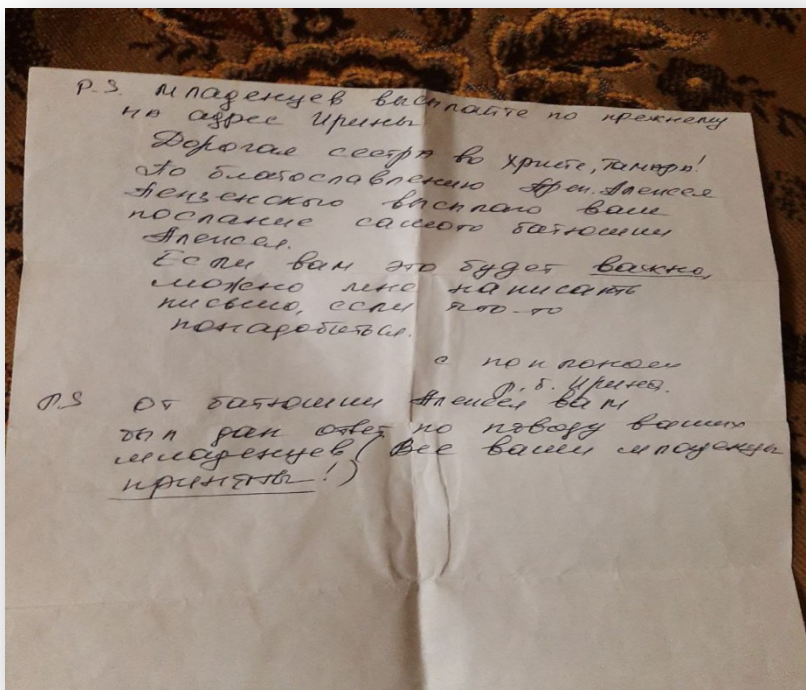 P.S. младенцев высылайте по прежнему
на адрес Ирины
Дорогая сестра во Христе, Тамара!
По благославлению Арх. Алексея
Пензенского высылаю вам
послание самого батюшки
Алексея.
Если вам это будет важно,
можно мне написать
письмо, если что-то
понадобиться.
с поклоном
р.б. Ирина.
P.S от батюшки Алексея вам
был дан ответ по поводу ваших
младенцев (Все ваши младенцы
приняты!)